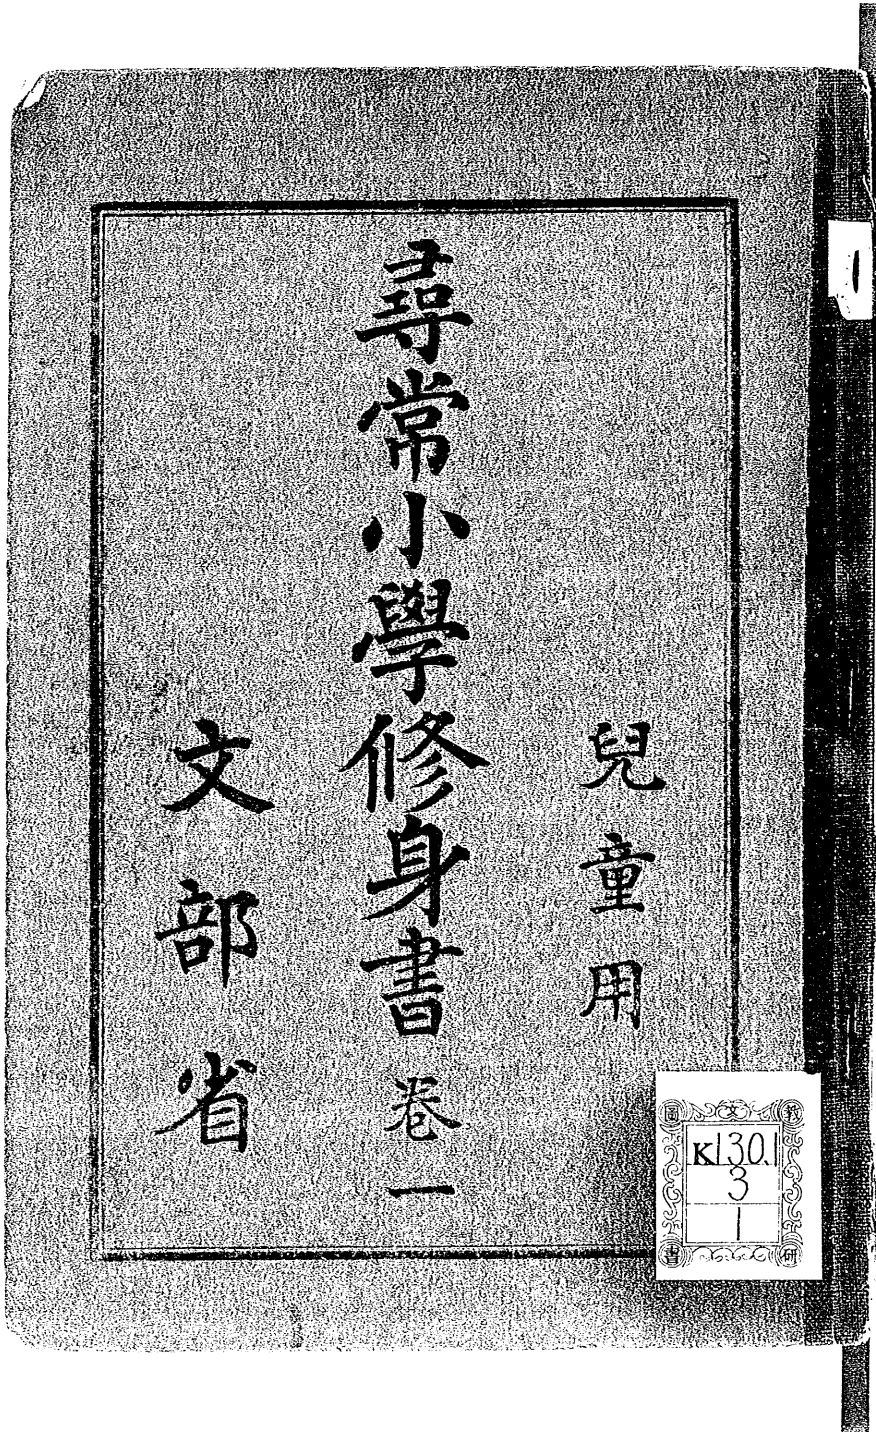 兒童用
尋常小學修身書 卷一
文部省
教文圖研書
K130.1
3
1